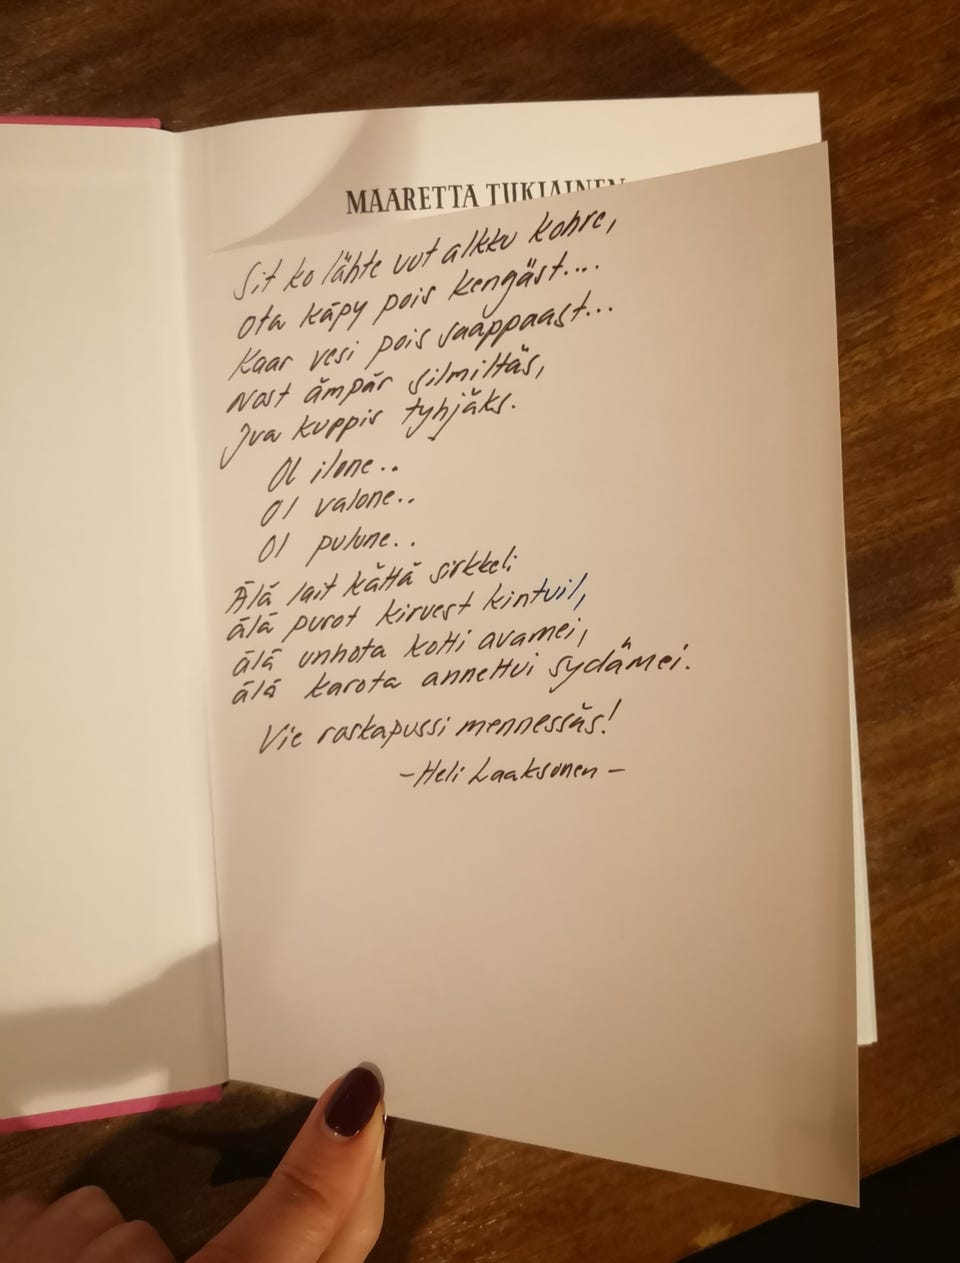 MAARETTA TUKIAINEN
Sit ko lähte uut alkku kohre,
Ota käpy pois kengäst....
Kaar vesi pois saappaast...
Nost ämpär silmiltäs,
Jua kuppis tyhjäks.
Ol ilone..
Ol valone..
Ol pulune..
Älä lait kättä sirkkeli
älä purot kirvest kintuil,
älä unhota kotti avamei,
älä karota annettui sydämei.
Vie roskapussi mennessäs!
-Heli Laaksonen-